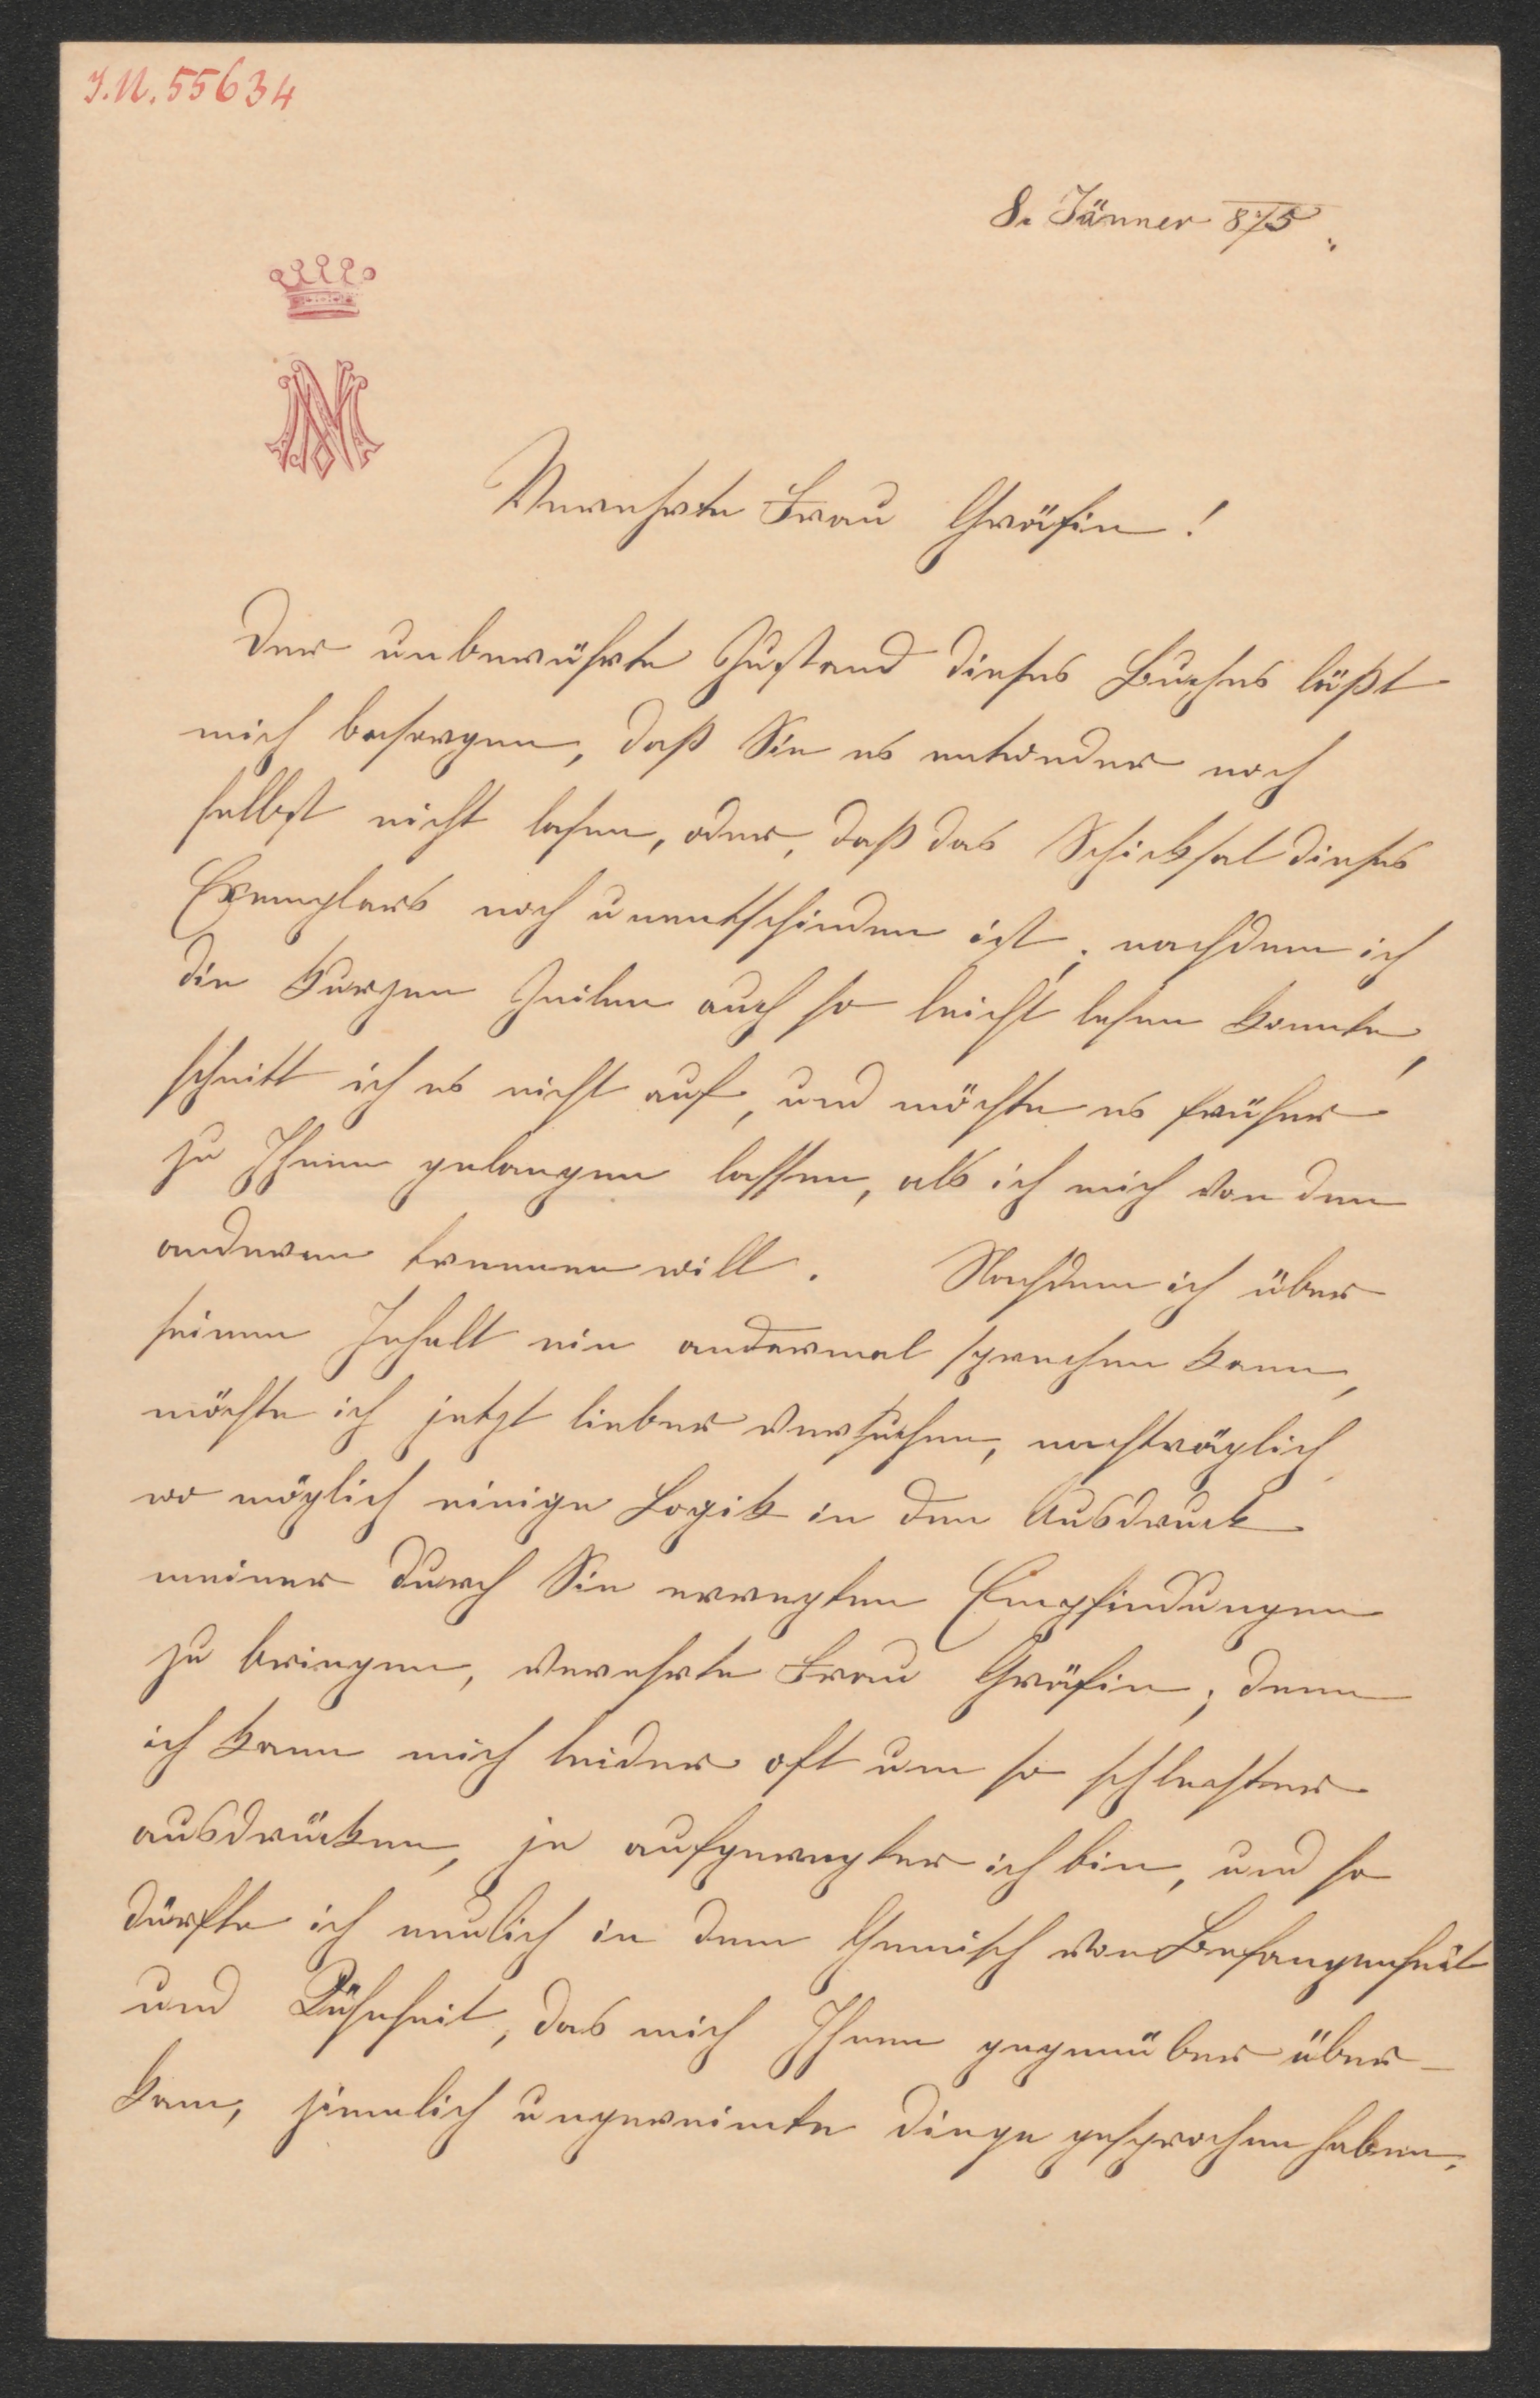 I.N. 55634
8. Jänner 875.
Verehrte Frau Gräfin!
Der unberührte Zustand dieses Buches läßt
mich besorgen, daß Sie es entweder noch
selbst nicht lasen, oder, daß das Schicksal dieses
Exemplars noch unentschieden ist; nachdem ich
die kurzen Zeilen auch so leicht lesen konnte,
schnitt ich es nicht auf, und möchte es früher
zu Ihnen gelangen lassen, als ich mich von den
anderen trennen will. Nachdem ich über
seinen Inhalt ein andermal sprechen kann,
möchte ich jetzt lieber versuchen, nachträglich
wo möglich einige Logik in den Ausdruck
meiner durch Sie erregten Empfindungen
zu bringen, verehrte Frau Gräfin; denn
ich kann mich leider oft um so schlechter
ausdrücken, je aufgeregter ich bin, und so
dürfte ich neulich in dem Gemisch von Befangenheit
und Kühnheit, das mich Ihnen gegenüber über-
kam, ziemlich ungereimte Dinge gesprochen haben.